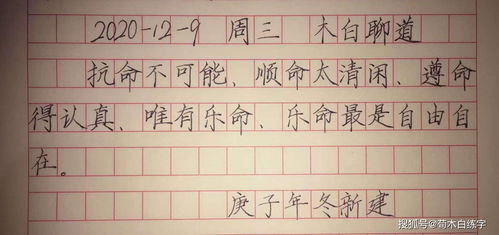 2020-12-9 周三 木白聊道
抗命不可能、顺命太清闲、遵命
得认真、唯有乐命、乐命最是自由自
在。
庚子年冬新建
搜狐号@荀木白练字